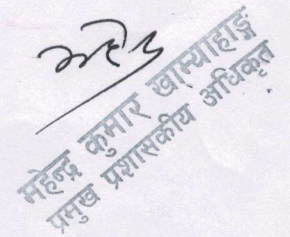 महेन्द्र
महेन्द्र कुमार खाम्याहाङ्ग
प्रमुख प्रशासकीय अधिकृत